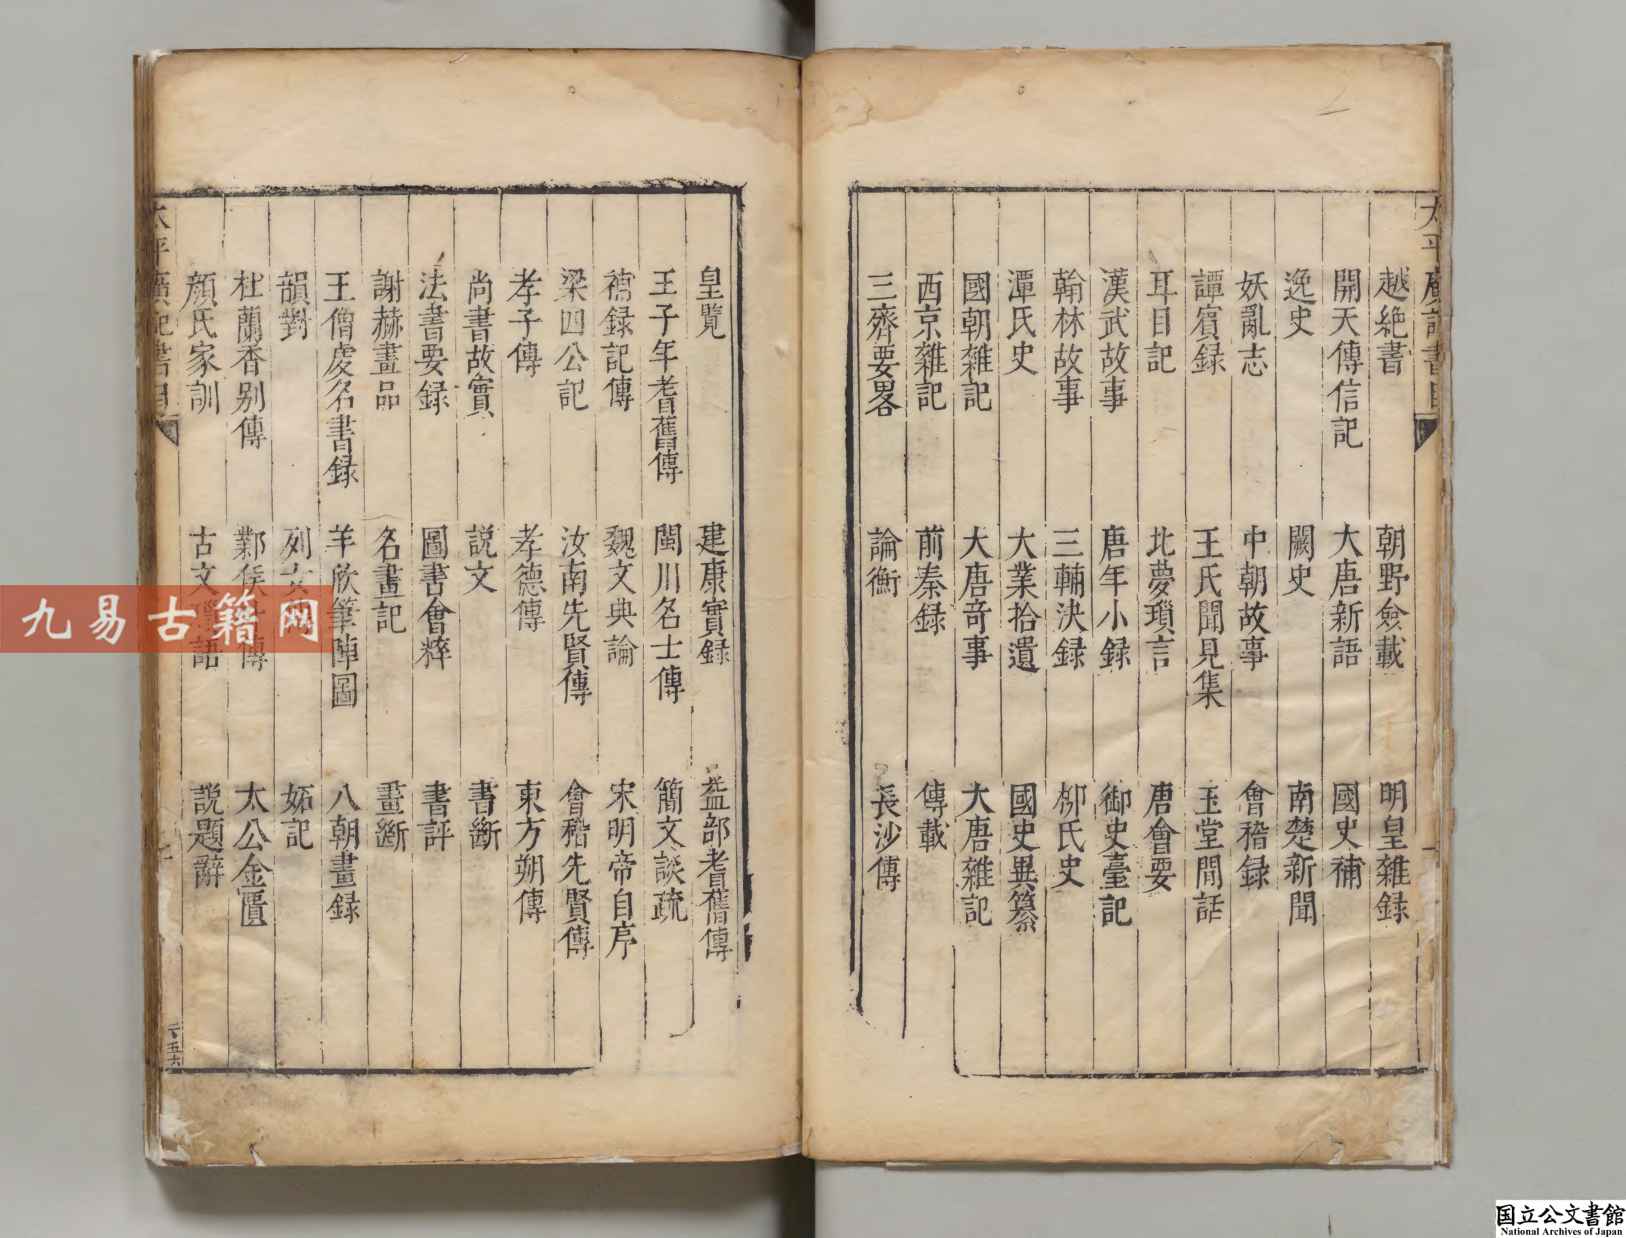 太平廣記書目
越絶書 朝野僉載 明皇雜録
開天傳信記 大唐新語 國史補
逸史 闕史 南楚新聞
妖亂志 中朝故事 會稽録
譚賓録 王氏聞見集 玉堂閒話
耳目記 北夢瑣言 唐會要
漢武故事 唐年小録 御史臺記
翰林故事 三輔決録 柳氏史
潭氏史 大業拾遺 國史異纂
國朝雜記 大唐竒事 大唐雜記
西京雜記 前秦録 傳載
三齊要畧 論衡 長沙傳
皇覽 建康實録 益部耆舊傳
王子年耆舊傳 閩川名士傳 簡文談疏
録記傳 魏文典論 宋明帝自序
梁四公記 汝南先賢傳 會稽先賢傳
孝子傳 孝德傳 東方朔傳
尚書故實 説文 書斷
法書要録 圖書會粹 書評
謝赫畫品 名畫記 畫斷
王僧虔名書録 羊欣筆陣圖 八朝畫録
韻對 列女 妬記
杜蘭香别傳 鄴侯傳 太公金匱
顔氏家訓 古文語 説題辭
太平廣記書目
九易古籍网
国立公文書館
National Archives of Japan